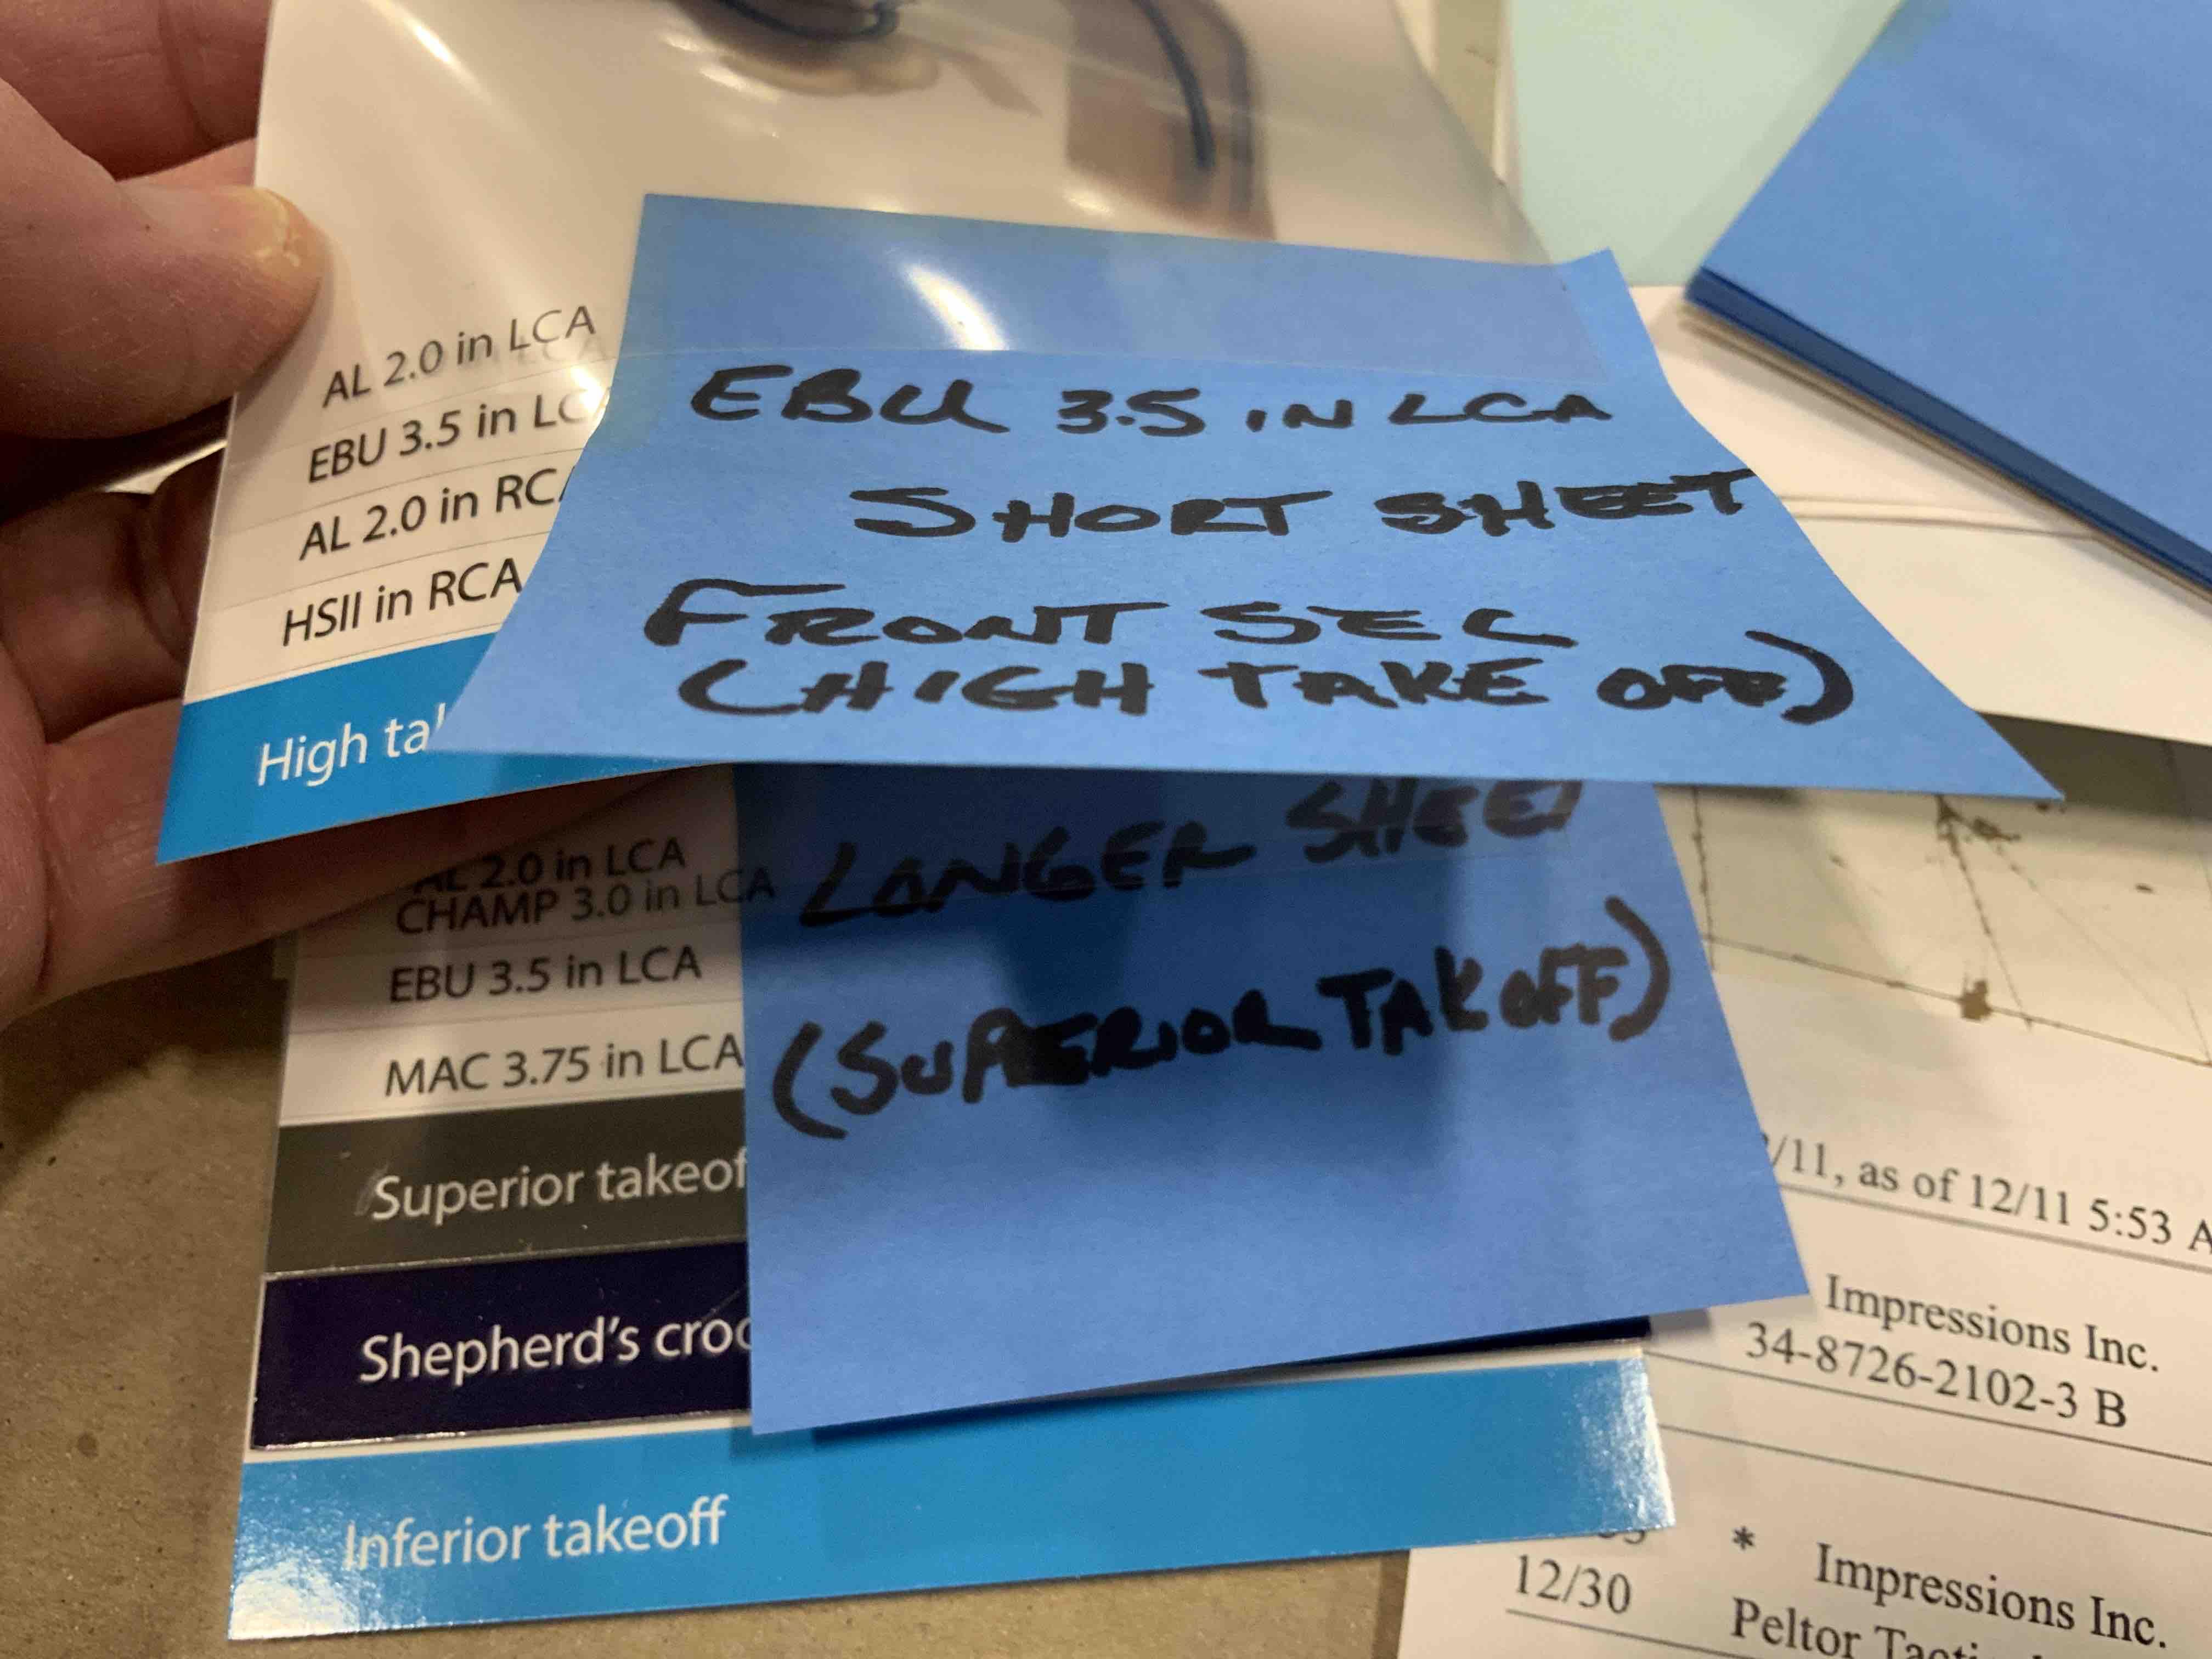 AL 2.0 in LCA
EBU 3.5 in LCA
AL 2.0 in RCA
HSII in RCA
High ta
EBU 3.5 IN LCA
SHORT SHEET
FRONT SEC
(HIGH TAKE OFF)
AL 2.0 in LCA
CHAMP 3.0 in LCA
EBU 3.5 in LCA
MAC 3.75 in LCA
Superior takeof
Shepherd's croo
Inferior takeoff
LONGER SHEET
(SUPERIOR TAKOFF)
/11, as of 12/11 5:53 A
Impressions Inc.
34-8726-2102-3 B
* Impressions Inc.
12/30 Peltor Tacti